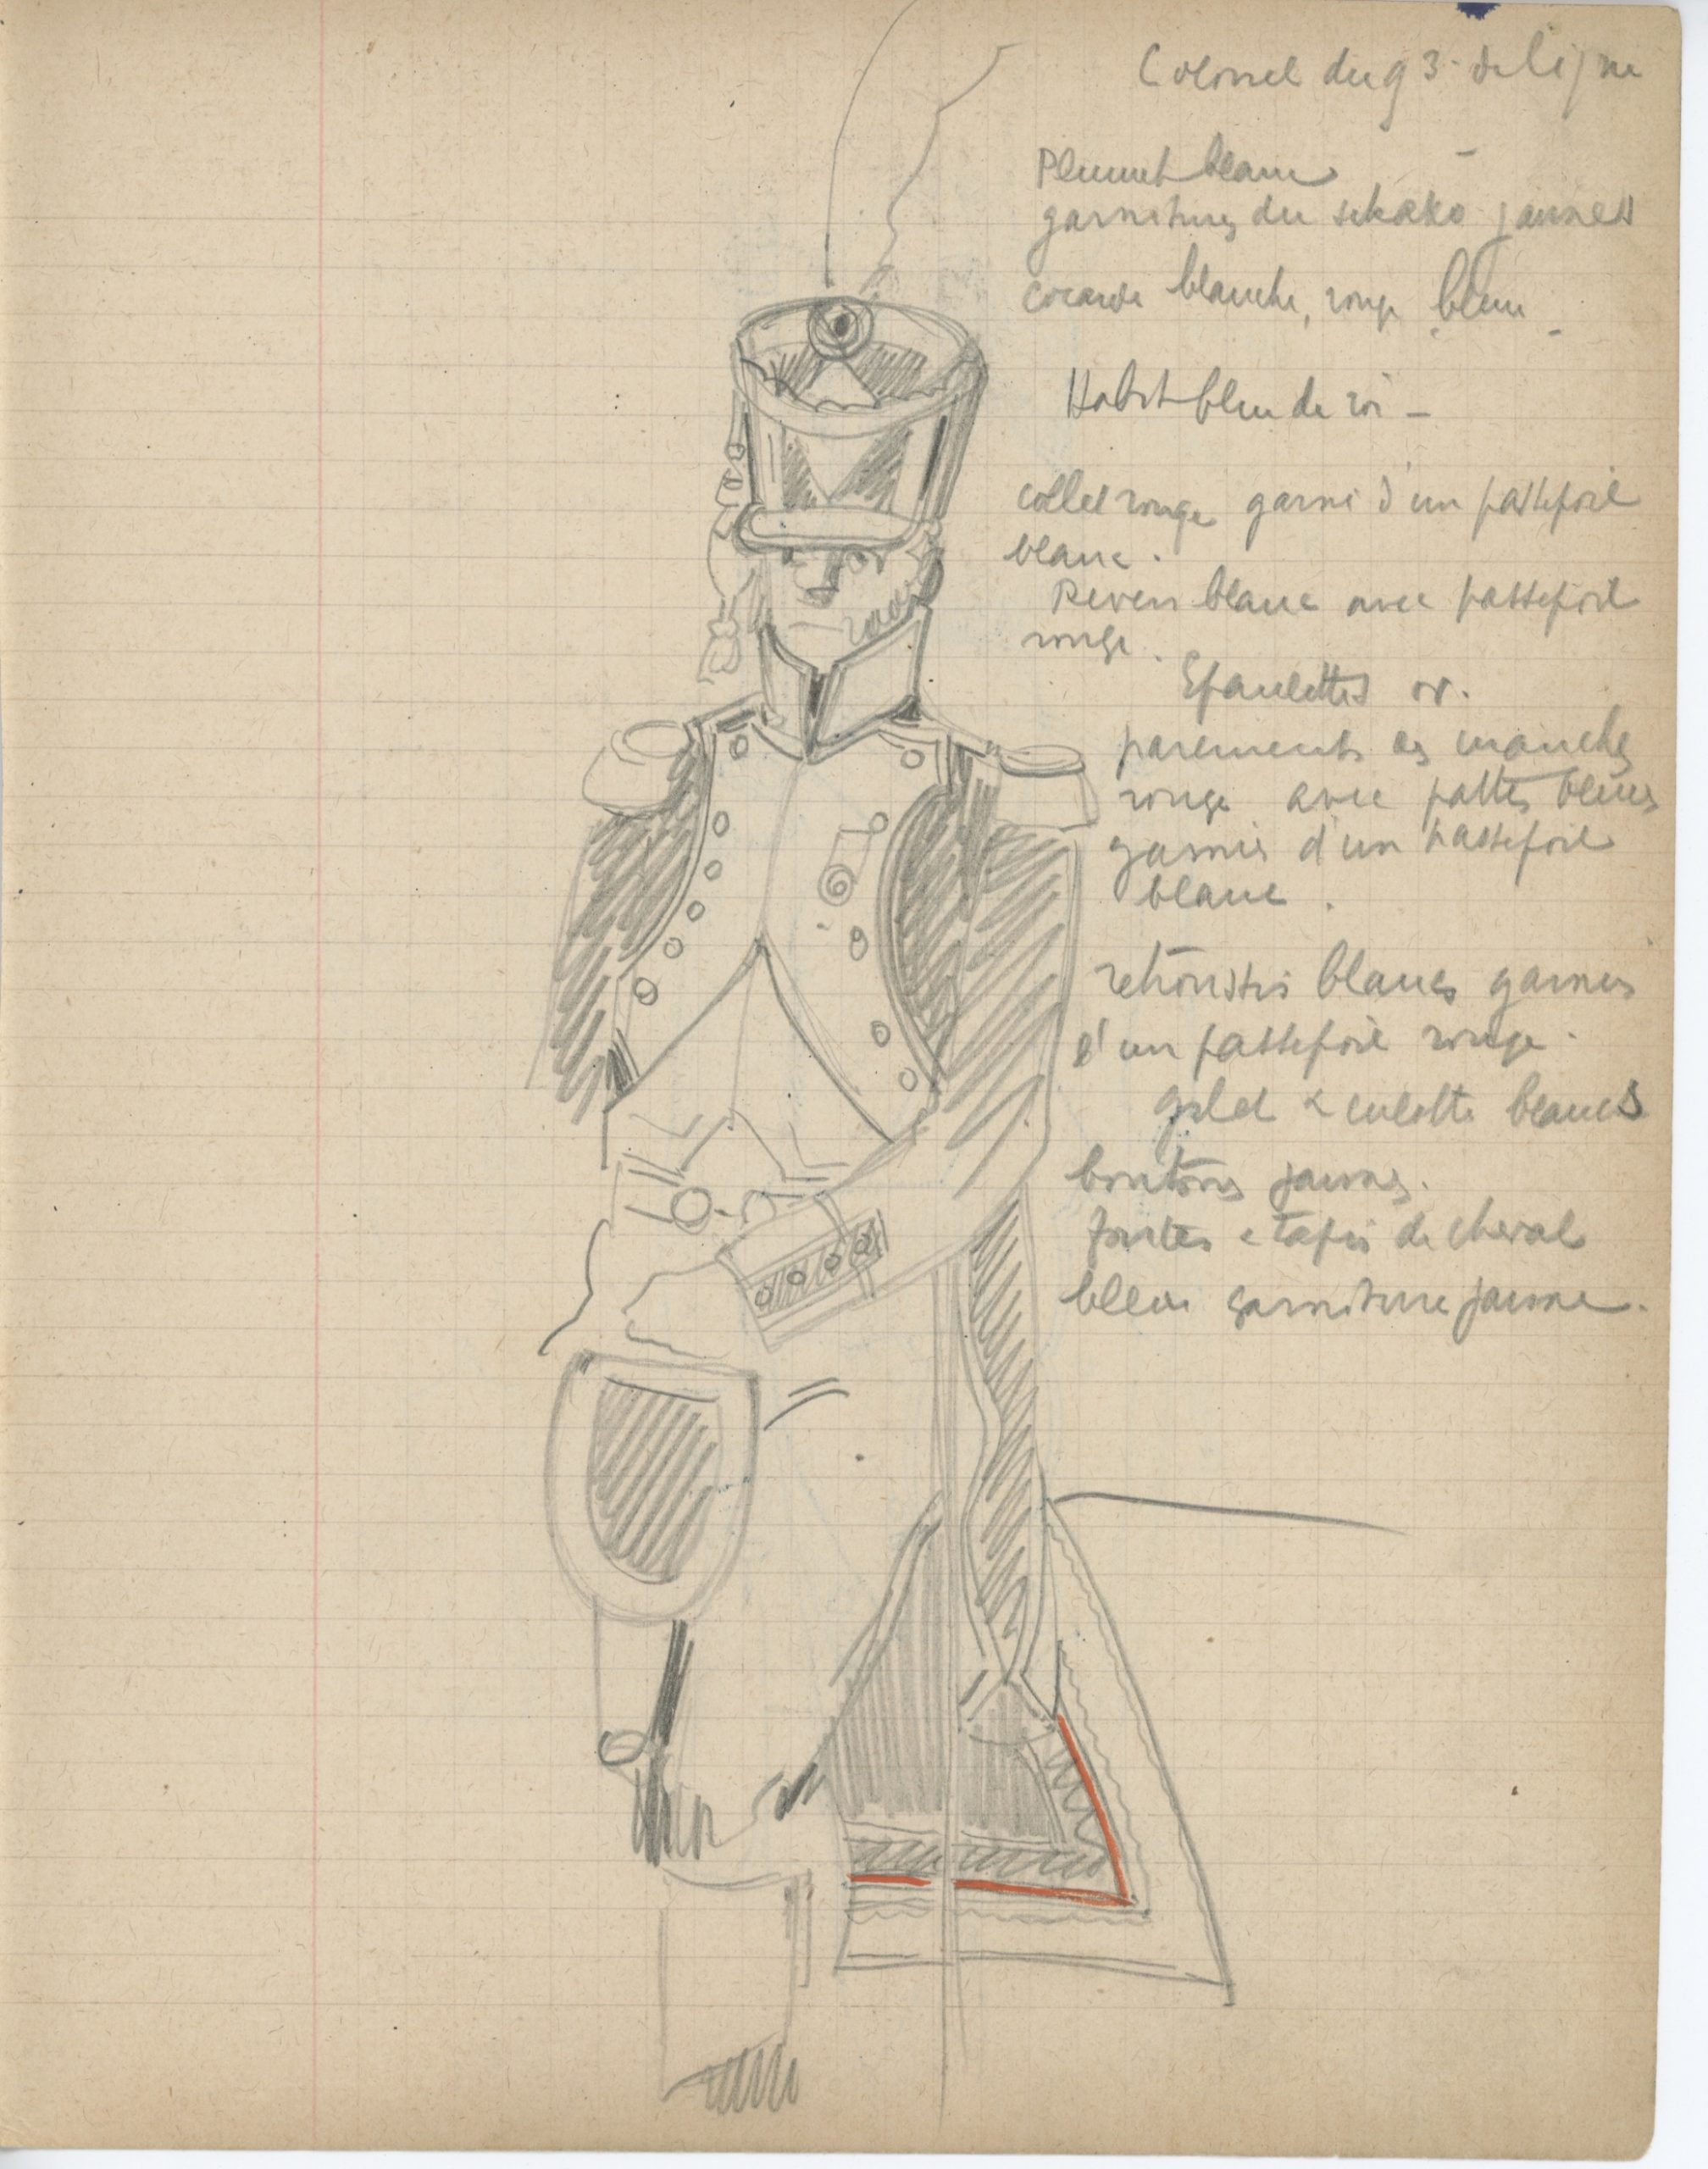 Colonel du 93. de ligne
Plumet blanc
garnitures du schako jaunes
cocarde blanche, rouge bleue
Habit bleu de roi -
collet rouge garni d'un passepoil
blanc.
Revers blanc avec passepoil
rouge.
Epaulettes or.
parements des manches
rouge avec pattes bleues
garnies d'un passepoil
blanc.
retroussis blancs garnis
d'un passepoil rouge.
gilet & culotte blancs
boutons jaunes.
fontes & tapis de cheval
bleu garniture jaune.